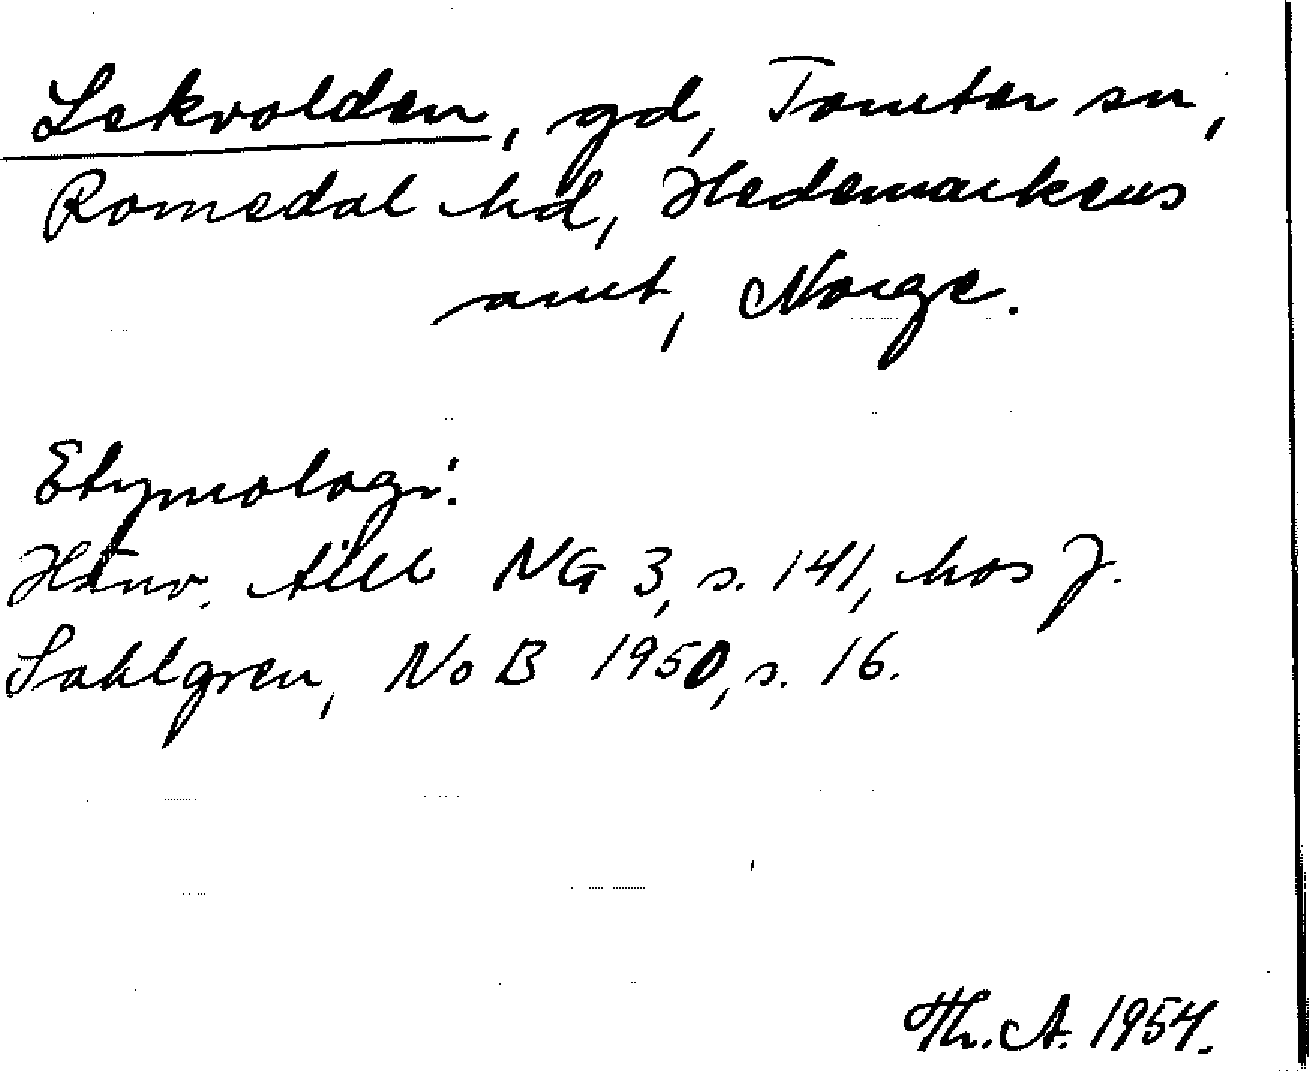 Lekvolden, gd, Tomter sn,
Romedal hd, Hedemarkens
amt, Norge.
Etymologi:
Hänv. till NG 3, s. 141, hos J.
Sahlgren, NoB 1950, s. 16.
Th. A. 1954.